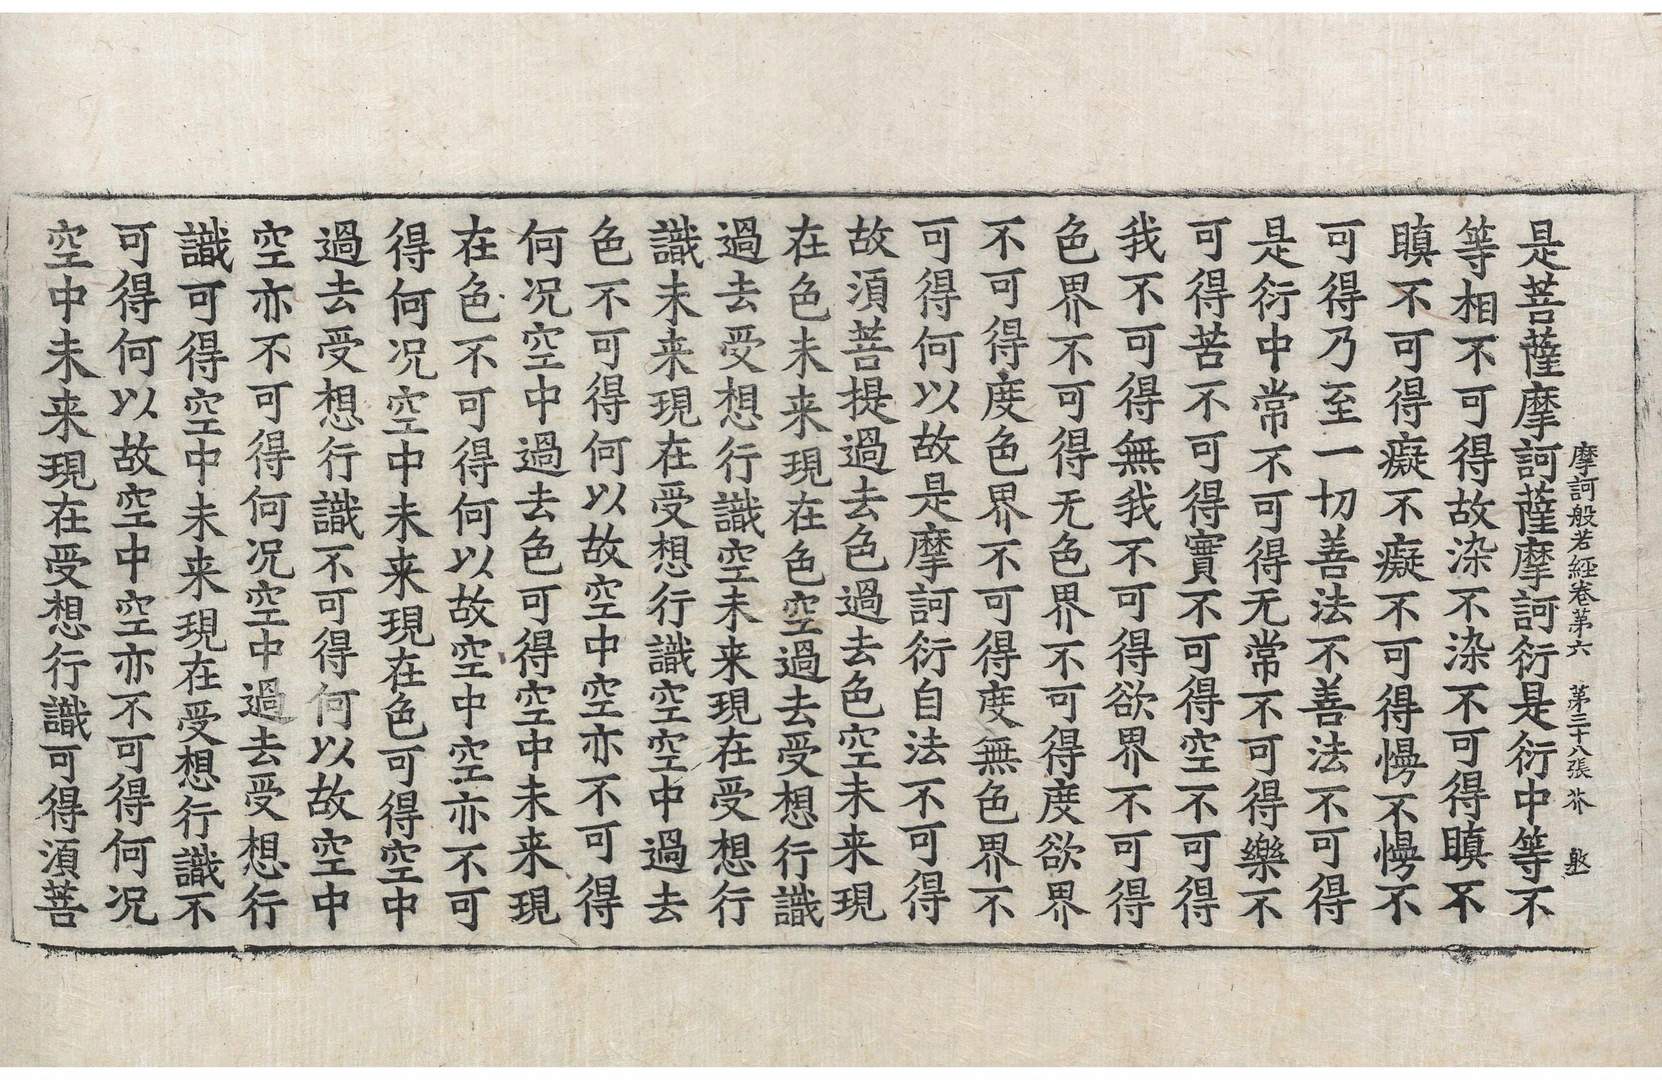 摩訶般若経卷第六 第三十八張 芥
是菩薩摩訶薩摩訶衍是衍中等不
等相不可得故染不染不可得瞋不
瞋不可得癡不癡不可得慢不慢不
可得乃至一切善法不善法不可得
是衍中常不可得无常不可得樂不
可得苦不可得實不可得空不可得
我不可得無我不可得欲界不可得
色界不可得无色界不可得度欲界
不可得度色界不可得度無色界不
可得何以故是摩訶衍自法不可得
故湏菩提過去色過去色空未来現
在色未来現在色空過去受想行識
過去受想行識空未来現在受想行
識未来現在受想行識空空中過去
色不可得何以故空中空亦不可得
何况空中過去色可得空中未来現
在色不可得何以故空中空亦不可
得何况空中未来現在色可得空中
過去受想行識不可得何以故空中
空亦不可得何况空中過去受想行
識可得空中未来現在受想行識不
可得何以故空中空亦不可得何况
空中未来現在受想行識可得湏菩